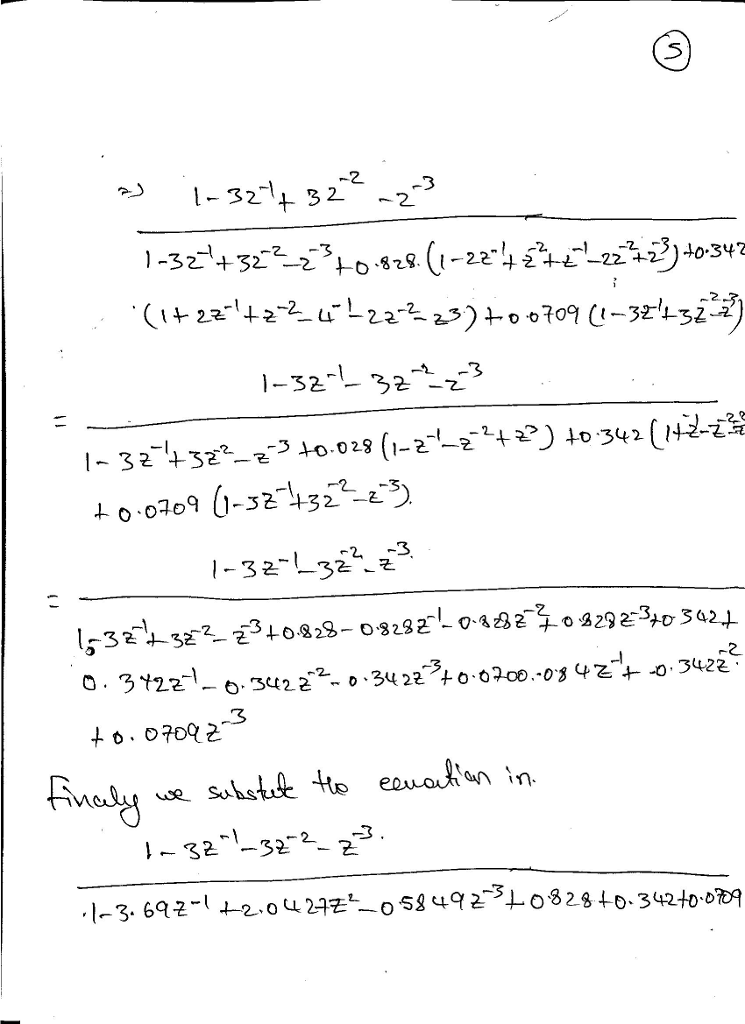 5
=> 1-3z^-1+3z^-2-z^-3
1-3z^-1+3z^-2-z^-3+0.828.(1-2z^-1+z^-2+z^-1-2z^-2+z^-3)+0.342
(1+2z^-1+z^-2-4^-1-2z^-2-z3)+0.0709(1-3z^-1+3z^-2-z^-3)
1-3z^-1-3z^-2-z^-3
=
1-3z^-1+3z^-2-z^-3+0.028(1-z^-1-z^-2+z^3)+0.342(1+z^-1-z^-2-z^-3
+0.0709(1-3z^-1+3z^-2-z^-3).
1-3z^-1-3z^-2-z^-3.
=
1-3z^-1+3z^-2-z^-3+0.828-0.828z^-1-0.828z^-2+0.828z^-3+0.342+
0.342z^-1-0.342z^-2-0.342z^-3+0.0700.-0.84z^-1+0.342z^-2.
+0.0709z^-3
Finaly we substute the eeuation in.
1-3z^-1-3z^-2-z^-3.
1-3.69z^-1+2.0427z^2-0.5849z^-3+0.828+0.342+0.0709